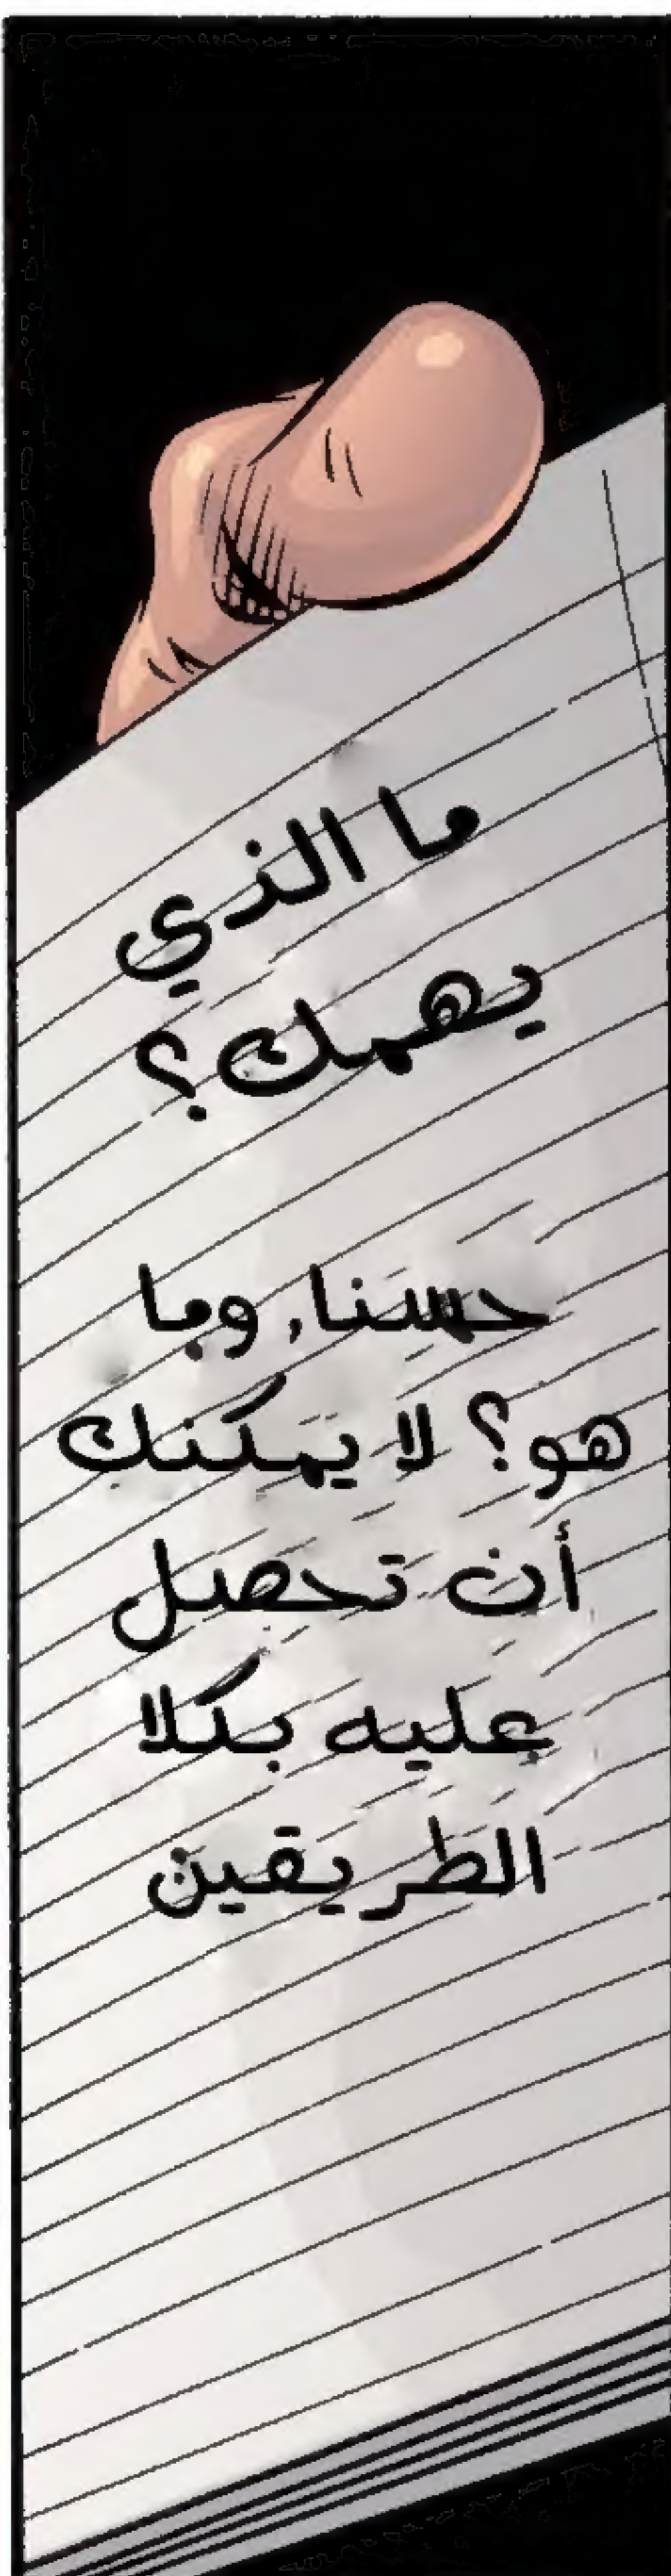 ما الذي
يهمك؟
حسنا, وما
هو؟ لا يمكنك
أن تحصل
عليه بكلا
الطريقين